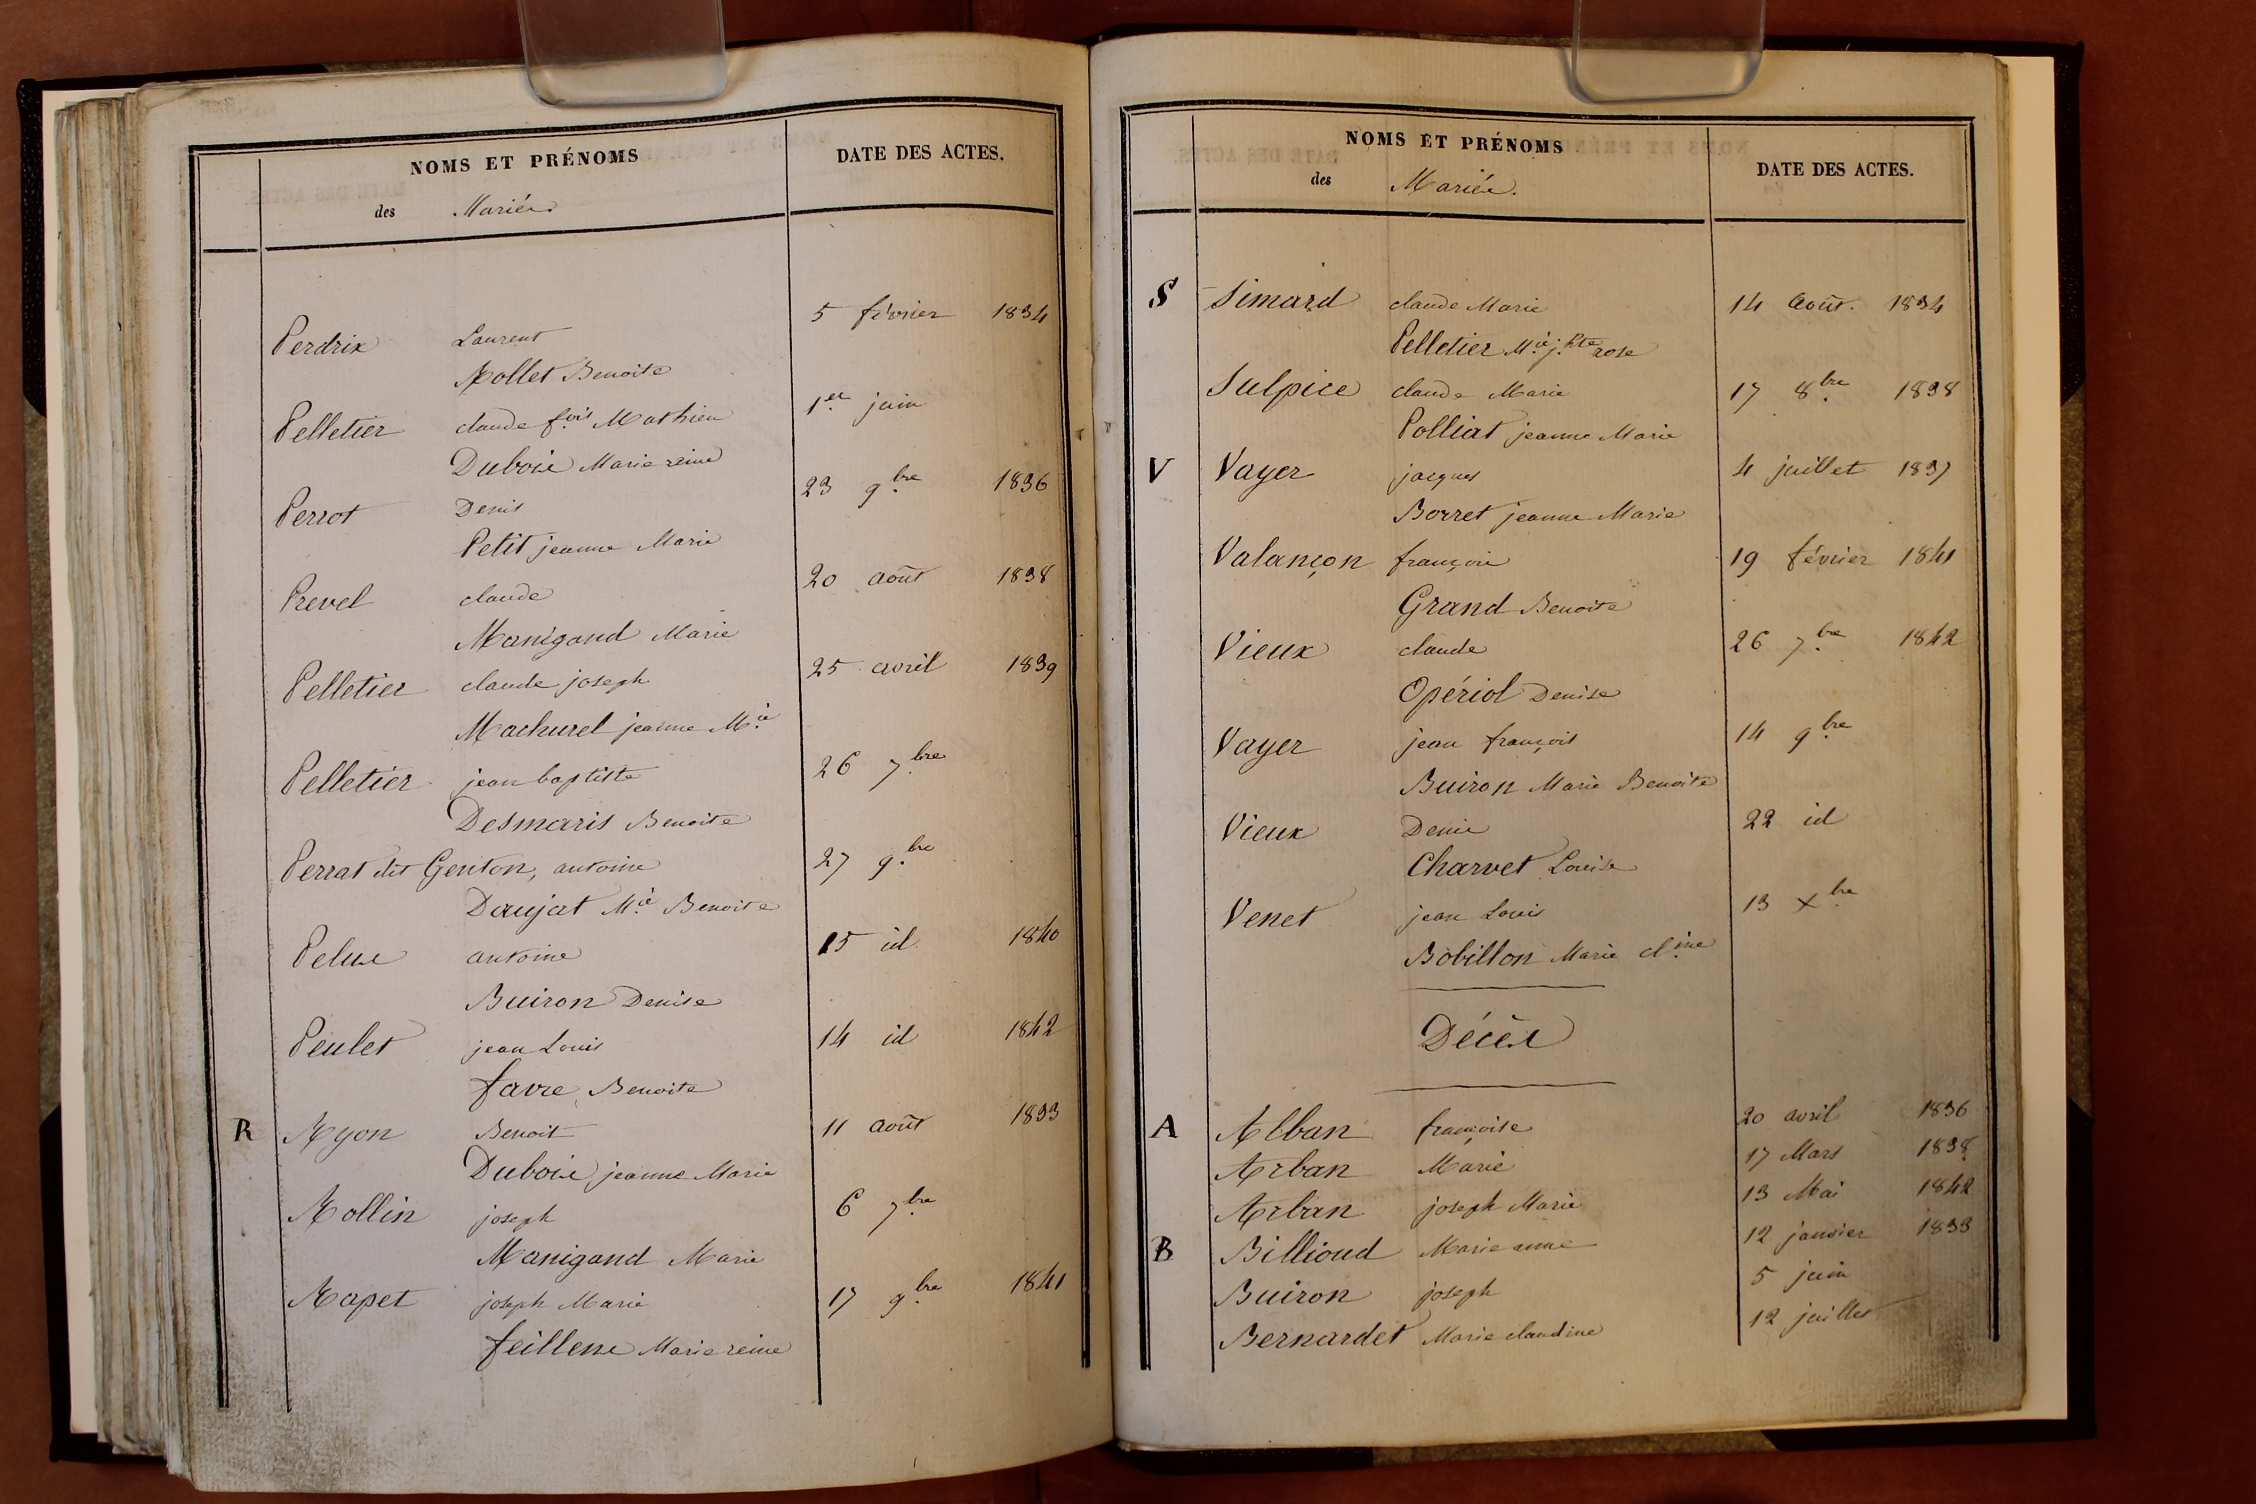 NOMS ET PRÉNOMS
DATE DES ACTES.
des Mariés
Perdrix Laurent 5 février 1834
Mollet Benoite
Pelletier claude f.ois Mathieu 1.er juin
Dubois Marie reine
Perrot Denis 23 9.bre 1836
Petit jeanne Marie
Prevel claude 20 août 1838
Manigand Marie
Pelletier claude joseph 25 avril 1839
Machurel jeanne M.ie
Pelletier jean baptiste 26 7.bre
Desmaris Benoite
Perrat dit Genton, antoine 27 9.bre
Daujat M.ie Benoite
Pelux antoine 15 id 1840
Buiron Denise
Peulet jean Louis 14 id 1842
favre Benoite
R Ryon Benoit 11 août 1833
Dubois jeanne Marie
Rollin joseph 6 7.bre
Manigand Marie
Rapet joseph Marie 17 9.bre 1841
feillene Marie reine
NOMS ET PRÉNOMS
DATE DES ACTES.
des Mariés.
S Simard claude Marie 14 août. 1834
Pelletier M.ie j.Bte rose
Sulpice claude Marie 17 8.bre 1838
Polliat jeanne Marie
V Vayer jacques 4 juillet 1837
Borret jeanne Marie
Valançon françois 19 février 1841
Grand Benoite
Vieux claude 26 7.bre 1842
Opériol Denise
Vayer jean françois 14 9.bre
Buiron Marie Benoite
Vieux Denis 22 id
Charvet Louise
Venet jean Louis 13 X.bre
Bobillon Marie cl.ine
Décès
A Alban françoise 20 avril 1836
Arban Marie 17 Mars 1838
Arban joseph Marie 13 Mai 1842
B Billioud Marie anne 12 janvier 1833
Buiron joseph 5 juin
Bernardet Marie claudine 12 juillet